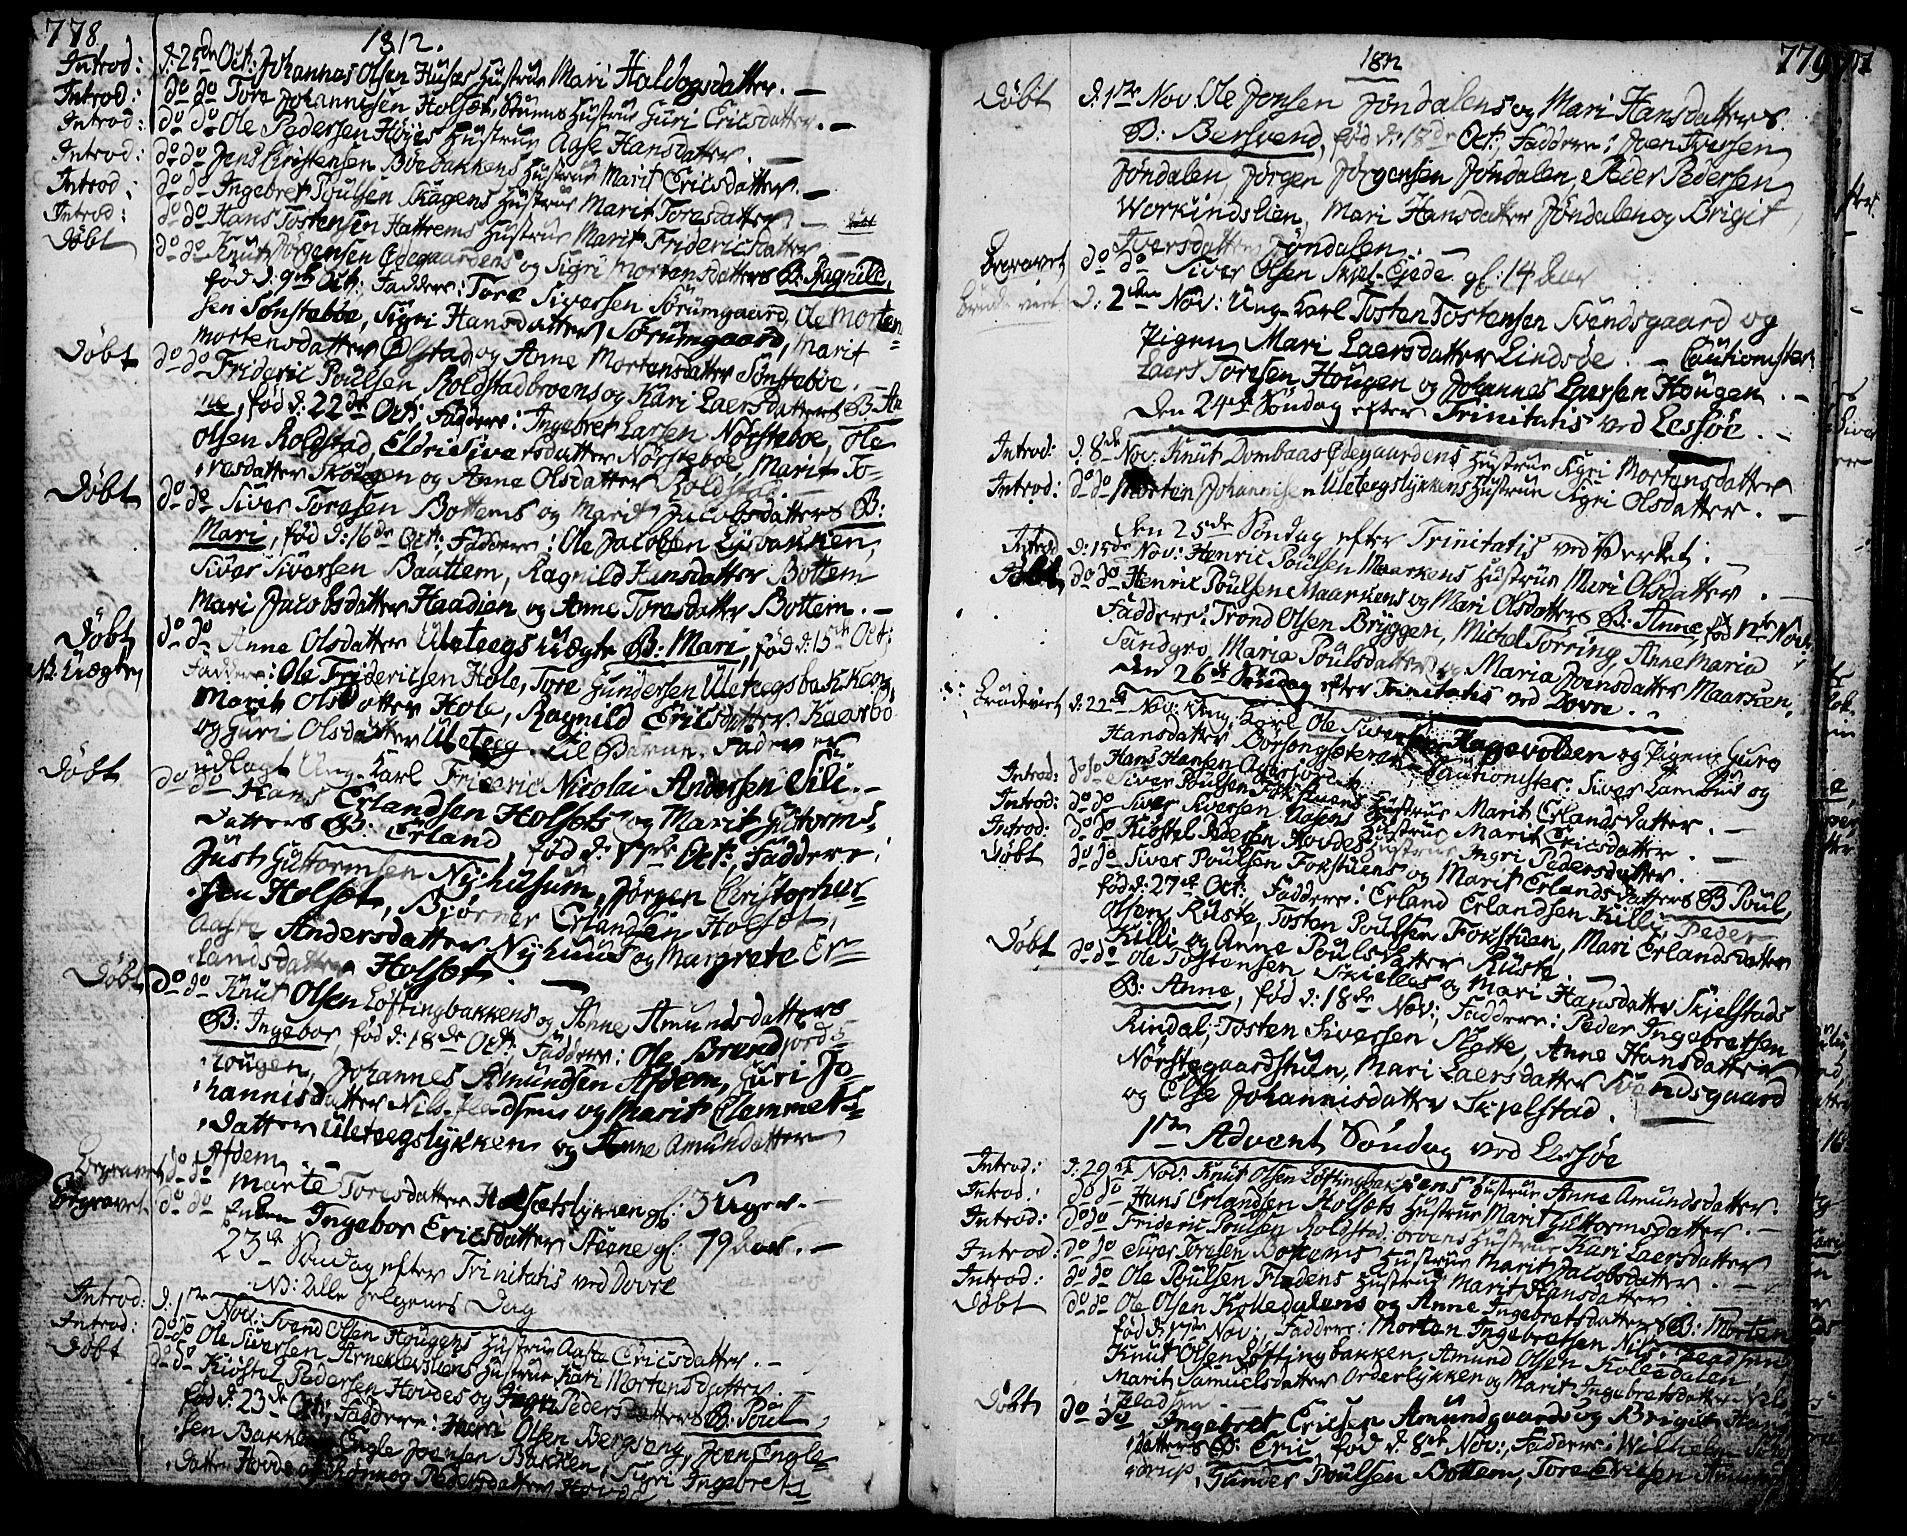 778
1812.
Introd: d: 25de Oct: Johannes Olsen Huses Hustrue Mari Haldogsdatter. —
Introd: do do Tore Johannissen Holsets Hustrue Guri Ericsdatter. —
Introd: do do Ole Pedersen Höjes Hustrue Aase Hansdatter. —
Introd: do do Jens Christensen Hustrue Marit Ericsdatter. —
Introd: do do Ingebret Poulsen Skagens Hustrue Marit Toresdatter —
Introd: do do Hans Tostensen Hattrems Hustrue Marit Fridericsdatter
Döbt do do Knut Jörgensen Ödegaardens og Sigri Mortensdatters B: Ragnild,
fød d: 9de Oct: Faddere: Tore Siversen Sörumgaard, Ole Morten-
sen Sönsteböe, Sigri Hansdatter Sörumgaard, Marit
Mortensdatter Ölstad og Anne Mortensdatter Sönsteböe.
Döbt do do Frideric Poulsen Roldstadbroens og Kari Laersdatters B: Ha
ne, fød d: 22de Oct: Faddere: Ingebret Larsen Nörsteböe, Ole
Olsen Roldstad, Eldri Siversdatter Nörsteböe, Marit To-
resdatter Skougen og Anne Olsdatter Roldstad
Döbt do do Siver Toresen Bottems og Marit Jacobsdatters B:
Mari, fød d: 16de Oct: Faddere: Ole Jacobsen
Siver Siversen Bauttem, Ragnild Hansdatter Bottem
Mari Jacobsdatter Haadien og Anne Toresdatter Bottem. —
Döbt do do Anne Olsdatter Uleteegs Uægte B: Mari, fød d: 15de Oct:
N: Uægte Faddere: Ole Fridericsen Hole, Tore Gundersen Uleteegsbakken,
Marit Olsdatter Hole, Ragnild Ericsdatter Kaarbö
og Guri Olsdatter Uleteeg til Barne Fader er
udlagt Ung-Karl Frideric Nicolai Andersen Lili. —
Döbt do do Hans Erlandsen Holsets og Marit Guttorms-
datters B: Erland, fød d: 17de Oct: Faddere:
Just Guttormsen Nyhusum, Jörgen Christopher-
sen Holset, Björner Erlandsen Holset,
Andersdatter Nyhuus og Margrete Er-
landsdatter Holset. —
Döbt do do Knut Olsen Löftingbakkens og Anne Amundsdatters
B: Ingebor, fød d: 18de Oct: Faddere: Ole Brendjord-
hougen, Johannes Amundsen Afdem, Guri Jo-
hannisdatter Nils-Fladsen og Marit Clammets-
datter Uleteegslykken og Anne Amundatter
Afdem
Begravet do do Marte Toresdatter Holsetslykken gl: 3 Uger. —
Begravet do do Enken Ingebor Ericsdatter Steene gl: 79 Aar. —
23de Søndag efter Trinitatis ved Dovre
N: Alle Helgenes Dag
Introd: d: 1ste Nov: Svend Olsen Hougens Hustrue Aaste Ericsdatter. —
Introd: do do Ole Siversen Arneklevliens Hustrue Kari Mortensdatter. —
Döbt do do Kiöstel Pedersen Hovdes og Ingri Pedersdatters B: Poul,
fød d: 23de Oct: Faddere: Olsen Bergseng, Joen Engle-
sen Bakken, Engle Joensen Bakken, Sigri Ingebrets-
datter Hovde og Rönnog Pedersdatter Hovde

779
1812
Döbt d: 1ste Nov Ole Jonsen Jöndalens og Mari Hansdatters
B: Bersvend, fød d: 18de Oct: Faddere: Joen Iversen
Jöndalen, Jörgen Jörgensen Jöndalen, Peder Pedersen
Workindslien, Mari Hansdatter Jöndalen og Brigit
Iversdatter Jöndalen. —
Begravet do do Siver Olsen Skjel-Ejede gl: 14 Aar
d: 2den Nov: Ung-Karl Tosten Tostensen Svendsgaard og
Pigen Mari Laersdatter Lindsöe. — Cautionister:
Laers Toresen Hougen og Johannes Laersen Hougen. —
Den 24de Søndag efter Trinitatis ved Lessöe. —
Introd: d: 8de Nov: Knut Dombaas Ödegaardens Hustrue Sigri Mortensdatter
Introd: do do Morten Johannisen Uleteegslykkens Hustrue Sigri Olsdatter. —
Den 25de Søndag efter Trinitatis ved Verket. —
Introd d: 15de Nov: Henric Poulsen Maarkens Hustrue Mari Olsdatter. —
Döbt do do Henric Poulsen Maarkens og Mari Olsdatters B: Anne, fød 1ste Nov:
Faddere: Trond Olsen Bryggen, Michel Torring, Anne Maria
Sandgro, Maria Poulsdatter og Maria Joensdatter Maarken.
Den 26de Søndag efter Trinitatis ved Dovre. —
Brudeviet d: 22de Nov: Ung-Karl Ole Siversen Hagevolden og Pigen Guro
Hansdatter Börsongseteren. Cautionister: Siver Lambuus og
Hans Hansen
Introd: do do Siver Poulsen Fokstuens Hustrue Marit Erlandsdatter. —
Introd: do do Siver Siversen Hustrue Marit Ericsdatter. —
Introd: do do Kiöstel Pedersen Hovdes Hustrue Ingri Pedersdatter. —
Döbt do do Siver Poulsen Fokstuens og Marit Erlandsdatters B Poul,
fød d: 27de Oct: Faddere: Erland Erlandsen Killi, Peder
Olsen Ruste, Tosten Poulsen Fokstuen, Mari Erlandsdatter
Killi og Anne Poulsdatter Ruste. —
Döbt do do Ole Tostensen Skielles og Mari Hansdatter Skjelstads
B: Anne, fød d: 18de Nov:, Faddere: Peder Ingebretsen
Rindal, Tosten Siversen Slette, Anne Hansdatter
Nörstegaardstuen, Mari Laersdatter Svendsgaard
og Else Johannisdatter Skjelstad. —
1ste Advent Søndag ved Lessöe
Introd: d: 29de Nov: Knut Olsen Löftingbakkens Hustrue Anne Amundsdatter. —
Introd: do do Hans Erlandsen Holsets Hustrue Marit Guttormsdatter. —
Introd: do do Frideric Poulsen Roldstadbroens Hustrue Kari Laersdatter
Introd: do do Siver Toresen Bottems Hustrue Marit Jacobsdatter. —
Introd: do do Ole Poulsen Hustrue Marit Hansdatter
Döbt do do Ole Olsen Kolledalens og Anne Ingebretsdatters B: Morten,
fød d: 17de Nov:, Faddere: Morten Ingebretsen Nils-Fladsen,
Knut Olsen Löftingbakken, Amund Olsen Kolledalen,
Marit Samuelsdatter Orderlykken og Marit Ingebretsdatter Nils-
Fladsen. —
Döbt do do Ingebret Ericsen Amundgaards og Brigit Hans-
datters B: Eric, fød d: 8de Nov:, Faddere: Wilhelm
Gunder Poulsen Bottem, Tore Ericsen Amund